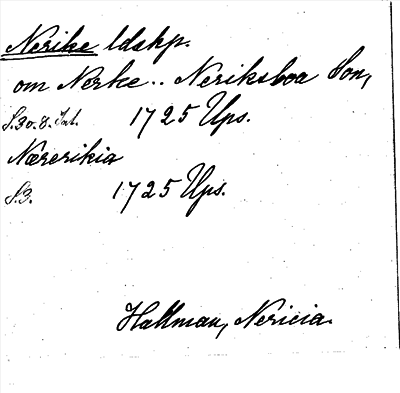 Nerike ldskp.
om Nerke.. Neriksboa Son,
S. 3 o. 8. Int. 1725 Ups.
Nærerikia
S. 3. 1725 Ups.
Hallman, Nericia.